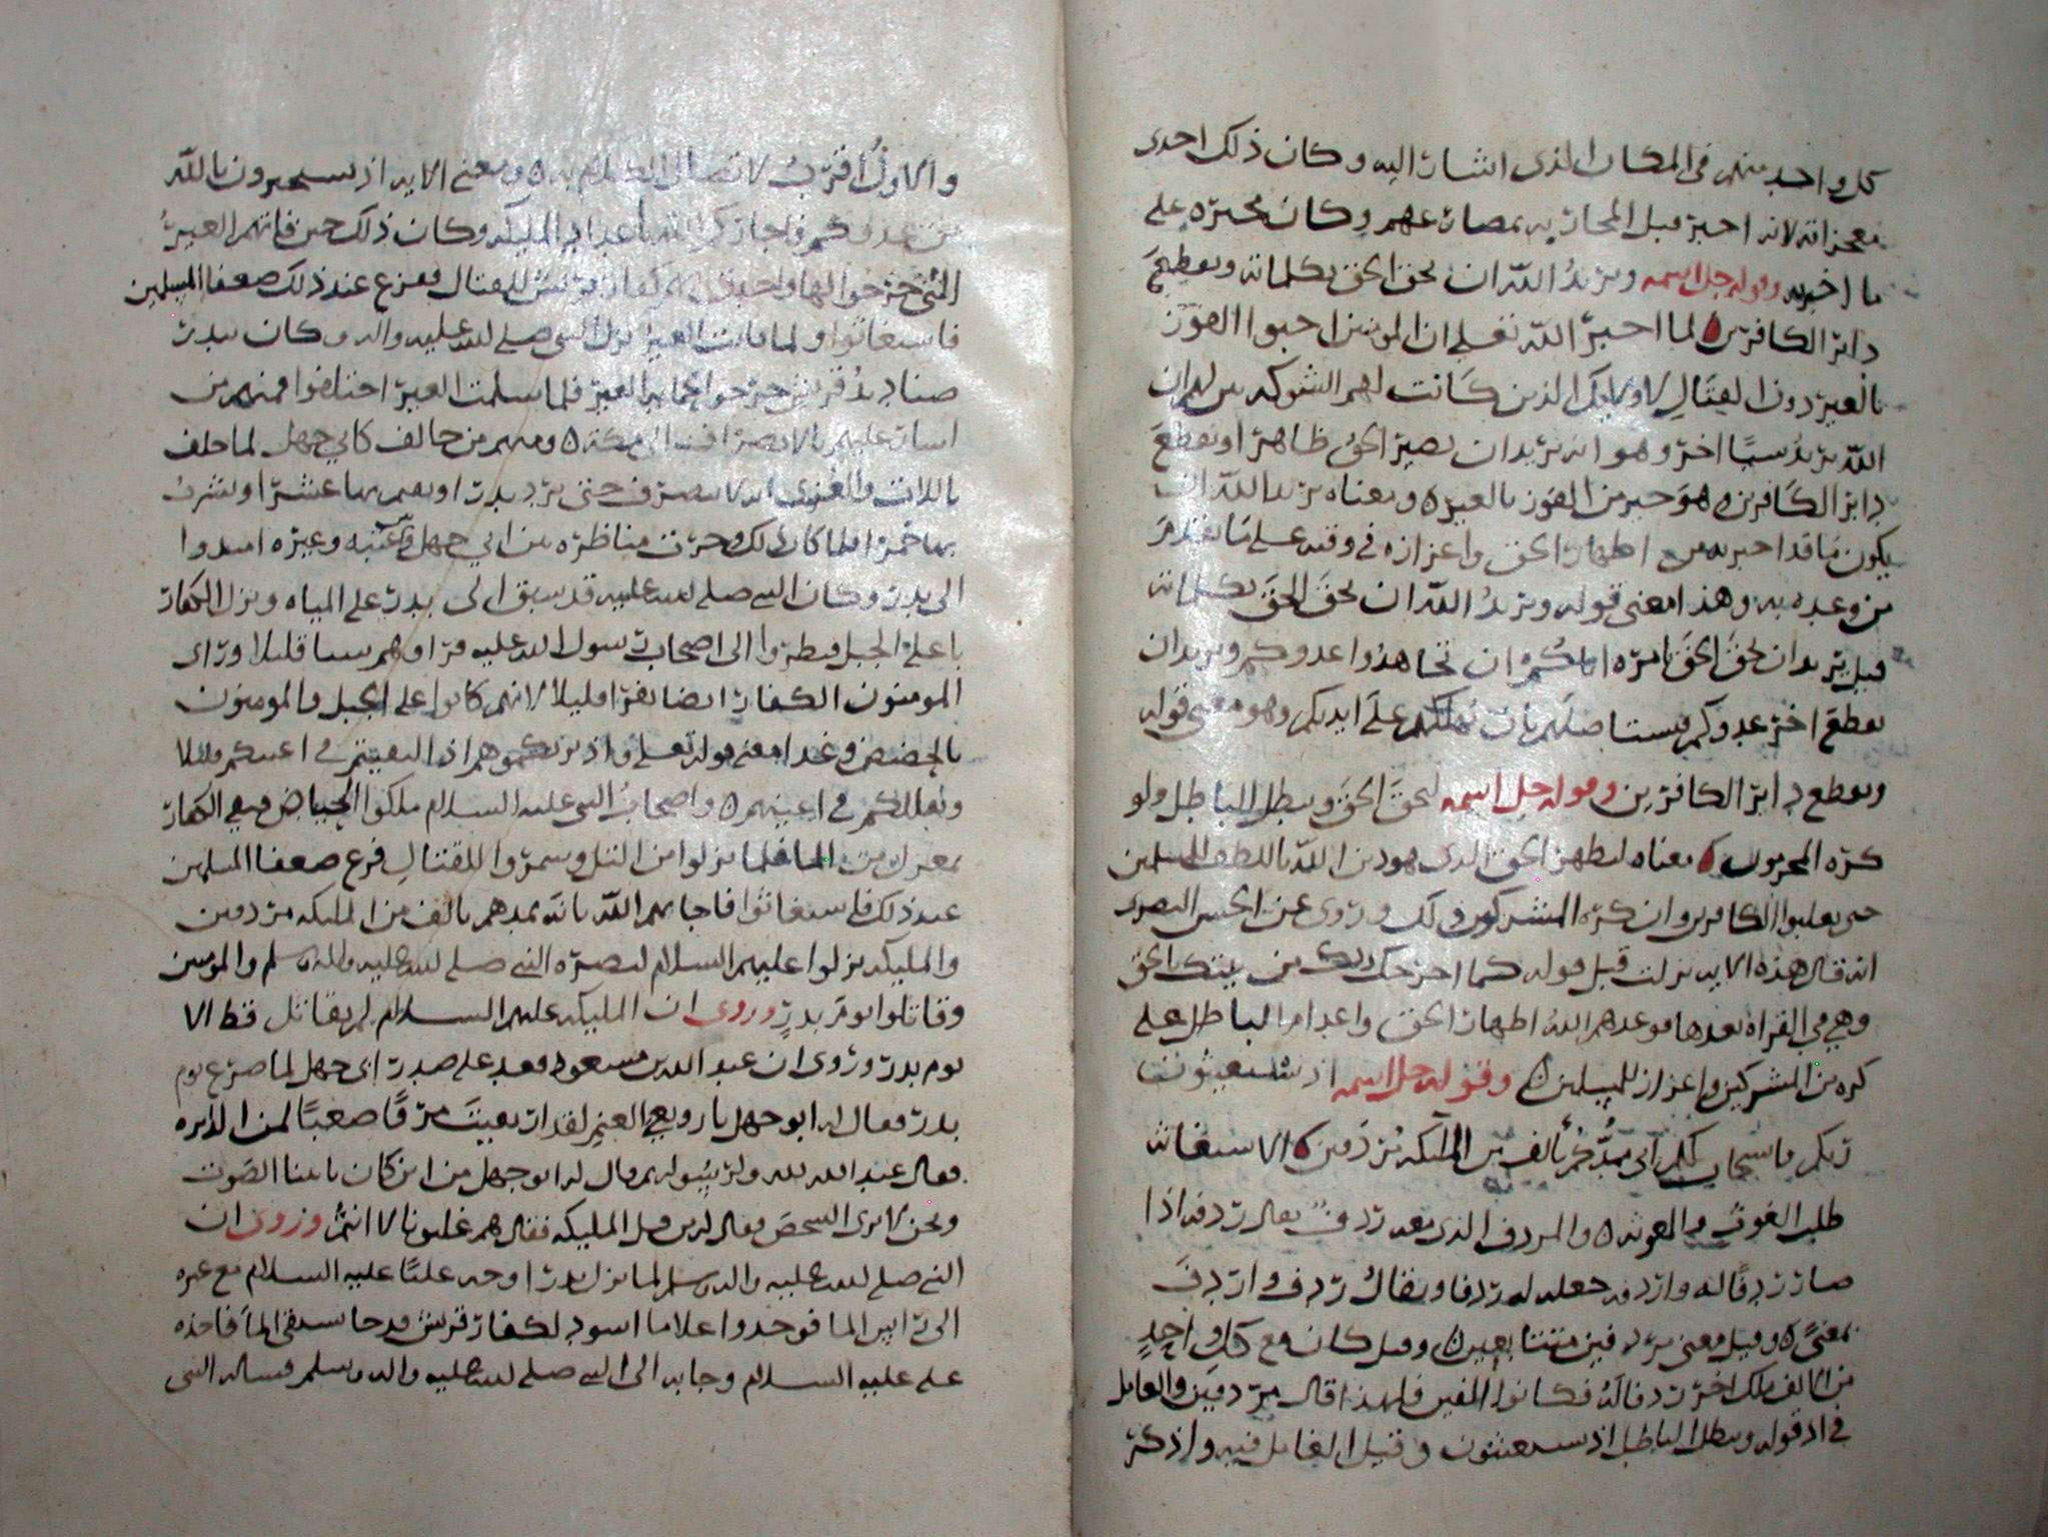 كل واحد منهم في المكان الذي اشار اليه وكان ذلك احدى
معجزاته لانه اخبر قبل المحاربه بمصارعهم وكان مخبره على
ما اخبر به وقوله جل اسمه ويريد الله ان يحق الحق بكلماته ويقطع
دابر الكافرين لما اخبر الله تعلى ان المومنين احبوا الفوز
بالعير دون القتال لاوليك الذين كانت لهم الشوكه بين لهم ان
الله يريد سببا اخر وهو انه يريد ان يصير الحق ظاهرا ويقطع
دابر الكافرين هو خير من الفوز بالعير ومعناه يريد الله ان
يكون ما قد اخبر به من اظهار الحق واعزازه في وقته على ما تقدم
من وعده به وهذا معنى قوله ويريد الله ان يحق الحق بكلماته
قيل يريد ان يحق الحق بامره اياكم ان تجاهدوا عدوكم ويريد ان
يقطع اخر عدوكم فيستاصلهم بان يهلكهم على ايديكم وهو معنى قوله
ويقطع دابر الكافرين وقوله جل اسمه ليحق الحق ويبطل الباطل ولو
كره المجرمون معناه ليظهر الحق الذي هو دين الله باللطف للمسلمين
حتى يغلبوا الكافرين وان كره المشركون ذلك وروى عن الحسن البصري
انه قال هذه الايه نزلت قبل قوله كما اخرجك ربك من بيتك بالحق
وهي في القراه بعدها فوعدهم الله اظهار الحق واعدام الباطل على
كره من المشركين واعزاز للمسلمين وقوله جل اسمه اذ تستغيثون
ربكم فاستجاب لكم اني ممدكم بالف من الملائكه مردفين الاستغاثه
طلب الغوث والمعونه والمردف الذي بعده ردف يقال ردفه اذا
صار ردفا له واردفه جعله له ردفا ويقال ردف واردف
بمعنى وقيل معنى مردفين متتابعين وقيل كان مع كل واحد
من الالف ملك اخر ردفا له فكانوا الفين فلهذا قال مردفين والعامل
في اذ قوله ويبطل الباطل اذ تستغيثون وقيل العامل فيه واذكر
والاول اقرب لاتصال الكلام به ومعنى الايه اذ تستجيرون بالله
من عدوكم فاجاركم الله باعداد المليكه وكان ذلك حين فاتهم العير
التي خرجوا لها واحدق بهم كفار قريش للقتال ففزع عند ذلك ضعفا المسلمين
فاستغاثوا ولما فاتت العير نزل النبي صلى الله عليه واله وكان ببدر
صناديد قريش خرجوا لحمايه العير فلما سلمت العير اختلفوا فمنهم من
اشار عليهم بالانصراف الى مكة ومنهم من خالف كابي جهل لما حلف
باللات والعزى انه لا ينصرف حتى يرد بدرا ويقيم بها عشرا ويشرب
بها خمرا فلما كان ذلك وجرت مناظره بين ابي جهل وعتبه وغيره
الى بدر وكان النبي صلى الله عليه قد سبق الى بدر على المياه ونزل الكفار
باعلى الجبل فنظروا الى اصحاب رسول الله عليه فراوهم شيئا قليلا وراى
المومنون الكفار ايضا نفرا قليلا لانهم كانوا على الجبل والمومنون
بالحضيض وهذا معنى قوله تعلى واذ يريكموهم اذ التقيتم في اعينكم قليلا
ويقللكم في اعينهم واصحاب النبي عليه السلام ملكوا الحياض وبقي الكفار
بمعزل من الما فلما نزلوا من التل وشمروا للقتال فزع ضعفا المسلمين
عند ذلك فاستغاثوا فاجابهم الله بانه يمدهم بالف من المليكه مردفين
والمليكه نزلوا عليهم السلام لنصره النبي صلى الله عليه واله وسلم والمومنين
وقاتلوا يوم بدر وروى ان المليكه عليهم السلام لم يقاتل قط الا
يوم بدر وروى ان عبد الله بن مسعود قعد على صدر ابي جهل لما صرع يوم
بدر فقال له ابو جهل يا رويعي الغنم لقد ارتقيت مرقا صعبا لمن الدبره
فقال عبد الله لله ولرسوله وقال له ابو جهل من اين كان ياتينا الصوت
ونحن لا نرى الشخص فقال له من قبل المليكه فقال هم غلبونا لا انتم وروى ان
النبي صلى الله عليه واله وسلم لما نزل بدرا وجه عليا عليه السلام مع غيره
الى بير الما فوجدوا غلاما اسود لكفار قريش قد جا يستقي الما فاخذه
علي عليه السلام وجا به الى النبي صلى الله عليه واله وسلم فساله النبي